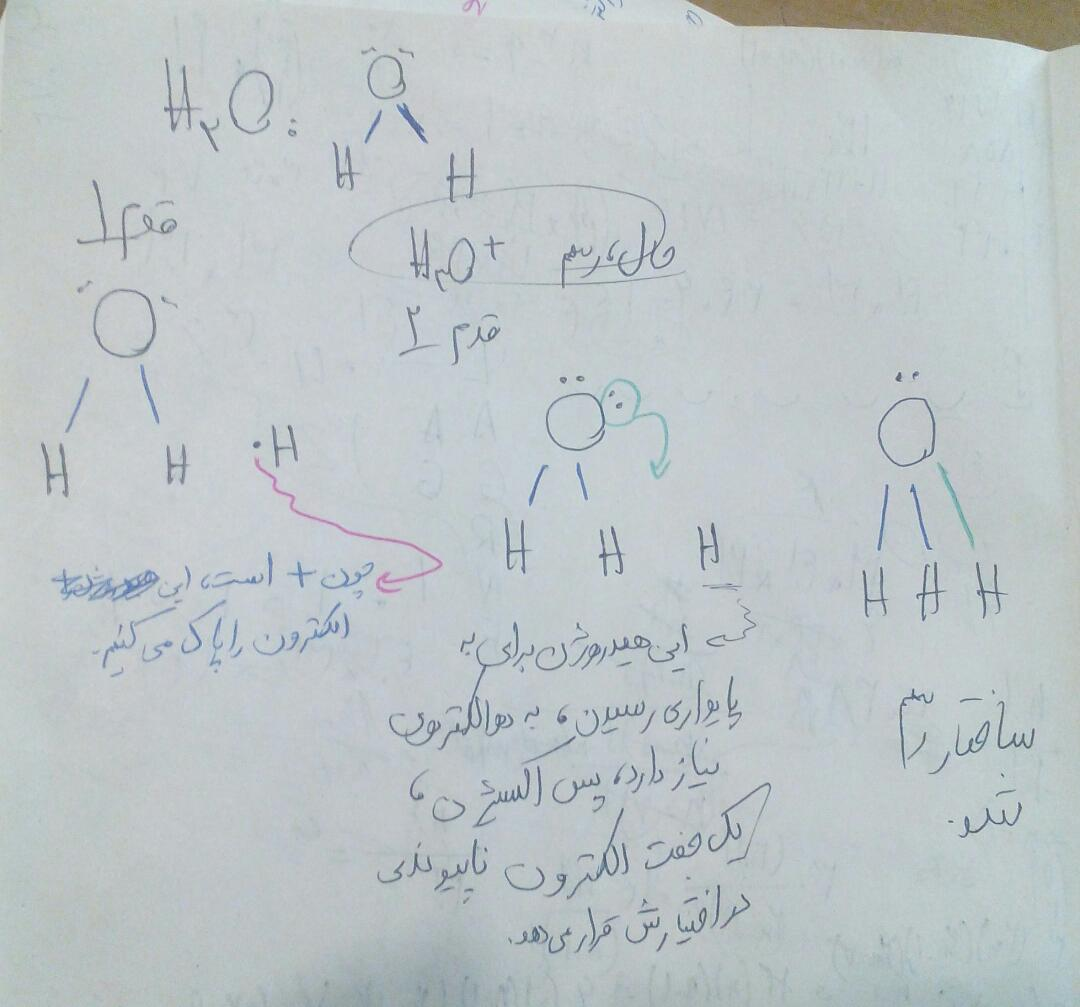 H₂O:
Ö
H H
قدم ۱
حال، رسم H₃O⁺
قدم ۲
O
H H ·H
چون + است، این
الکترون را پاک می کنیم.
O :
H H H
این هیدروژن برای به
پایداری رسیدن، به دو الکترون
نیاز دارد، پس اکسیژن،
یک جفت الکترون ناپیوندی
در اختیارش قرار می دهد.
Ö
H H H
ساختار رسم
شد.